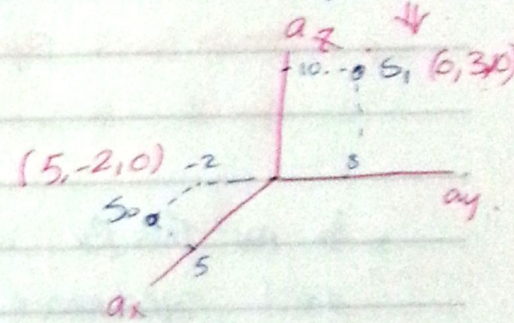 az
10 S₁ (0,3,10)
(5,-2,0) -2 3
S₀ ay
5
ax